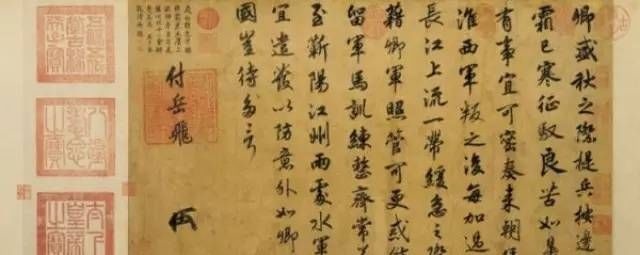 卿盛秋之際提兵按邊
霜已寒征馭良苦如是
有事宜可密奏来朝
淮西軍叛之後每加過
長江上流一帶緩急之際
藉卿軍照管可更戒
留軍馬訓練整齊常
至蘄陽江州兩處水軍
宜遣發以防意外如卿
國豈待多言
付岳飛
八徵耄念之寶
太上皇帝之寶